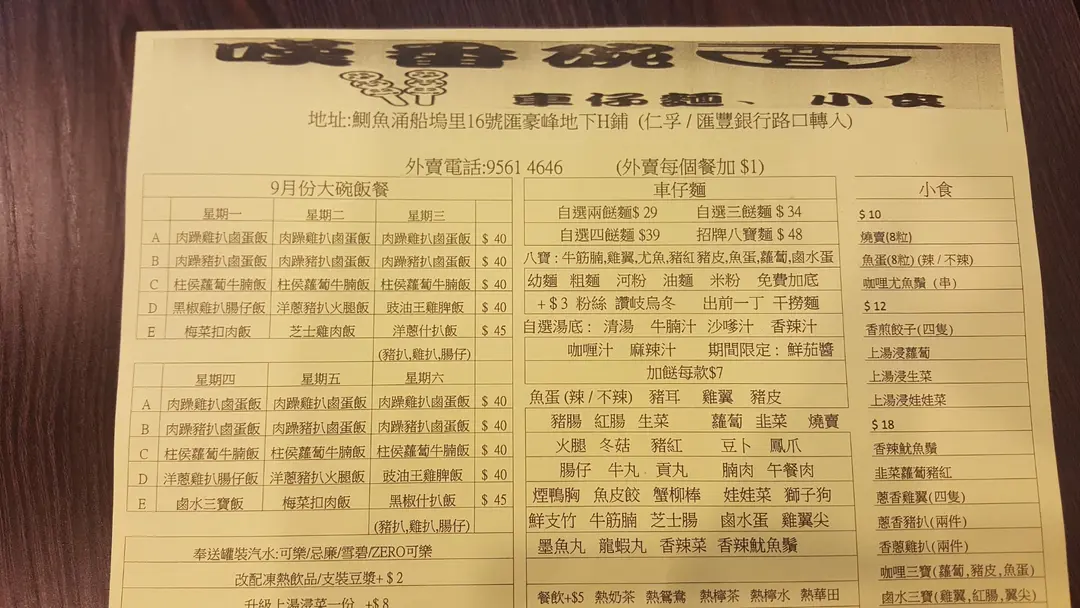 啖番碗宮
車仔麵、小食
地址:鰂魚涌船塢里16號匯豪峰地下H鋪 (仁孚/匯豐銀行路口轉入)
外賣電話:9561 4646 (外賣每個餐加 $1)
9月份大碗飯餐
星期一 星期二 星期三
A 肉躁雞扒鹵蛋飯 肉躁雞扒鹵蛋飯 肉躁雞扒鹵蛋飯 $ 40
B 肉躁豬扒鹵蛋飯 肉躁豬扒鹵蛋飯 肉躁豬扒鹵蛋飯 $ 40
C 柱侯蘿蔔牛腩飯 柱侯蘿蔔牛腩飯 柱侯蘿蔔牛腩飯 $ 40
D 黑椒雞扒腸仔飯 洋蔥豬扒火腿飯 豉油王雞脾飯 $ 40
E 梅菜扣肉飯 芝士雞肉飯 洋蔥什扒飯 $ 45
(豬扒,雞扒,腸仔)
星期四 星期五 星期六
A 肉躁雞扒鹵蛋飯 肉躁雞扒鹵蛋飯 肉躁雞扒鹵蛋飯 $ 40
B 肉躁豬扒鹵蛋飯 肉躁豬扒鹵蛋飯 肉躁豬扒鹵蛋飯 $ 40
C 柱侯蘿蔔牛腩飯 柱侯蘿蔔牛腩飯 柱侯蘿蔔牛腩飯 $ 40
D 洋蔥雞扒腸仔飯 洋蔥豬扒火腿飯 豉油王雞脾飯 $ 40
E 鹵水三寶飯 梅菜扣肉飯 黑椒什扒飯 $ 45
(豬扒,雞扒,腸仔)
奉送罐裝汽水:可樂/忌廉/雪碧/ZERO可樂
改配凍熱飲品/支裝豆漿+$ 2
升級上湯浸菜一份 +$ 8
車仔麵
自選兩餸麵$ 29 自選三餸麵 $ 34
自選四餸麵 $39 招牌八寶麵 $ 48
八寶:牛筋腩,雞翼,尤魚,豬紅豬皮,魚蛋,蘿蔔,鹵水蛋
幼麵 粗麵 河粉 油麵 米粉 免費加底
+$ 3 粉絲 讚岐烏冬 出前一丁 干撈麵
自選湯底: 清湯 牛腩汁 沙嗲汁 香辣汁
咖喱汁 麻辣汁 期間限定:鮮茄醬
加餸每款$7
魚蛋 (辣/不辣) 豬耳 雞翼 豬皮
豬腸 紅腸 生菜 蘿蔔 韮菜 燒賣
火腿 冬菇 豬紅 豆卜 鳳爪
腸仔 牛丸 貢丸 腩肉 午餐肉
煙鴨胸 魚皮餃 蟹柳棒 娃娃菜 獅子狗
鮮支竹 牛筋腩 芝士腸 鹵水蛋 雞翼尖
墨魚丸 龍蝦丸 香辣菜 香辣魷魚鬚
餐飲+$5 熱奶茶 熱鴛鴦 熱檸茶 熱檸水 熱華田
小食
$ 10
燒賣(8粒)
魚蛋(8粒) (辣/不辣)
咖喱尤魚鬚 (串)
$ 12
香煎餃子(四隻)
上湯浸蘿蔔
上湯浸生菜
上湯浸娃娃菜
$ 18
香辣魷魚鬚
韮菜蘿蔔豬紅
蔥香雞翼(四隻)
蔥香豬扒(兩件)
香蔥雞扒(兩件)
咖喱三寶(蘿蔔,豬皮,魚蛋)
鹵水三寶(雞翼,紅腸,翼尖)